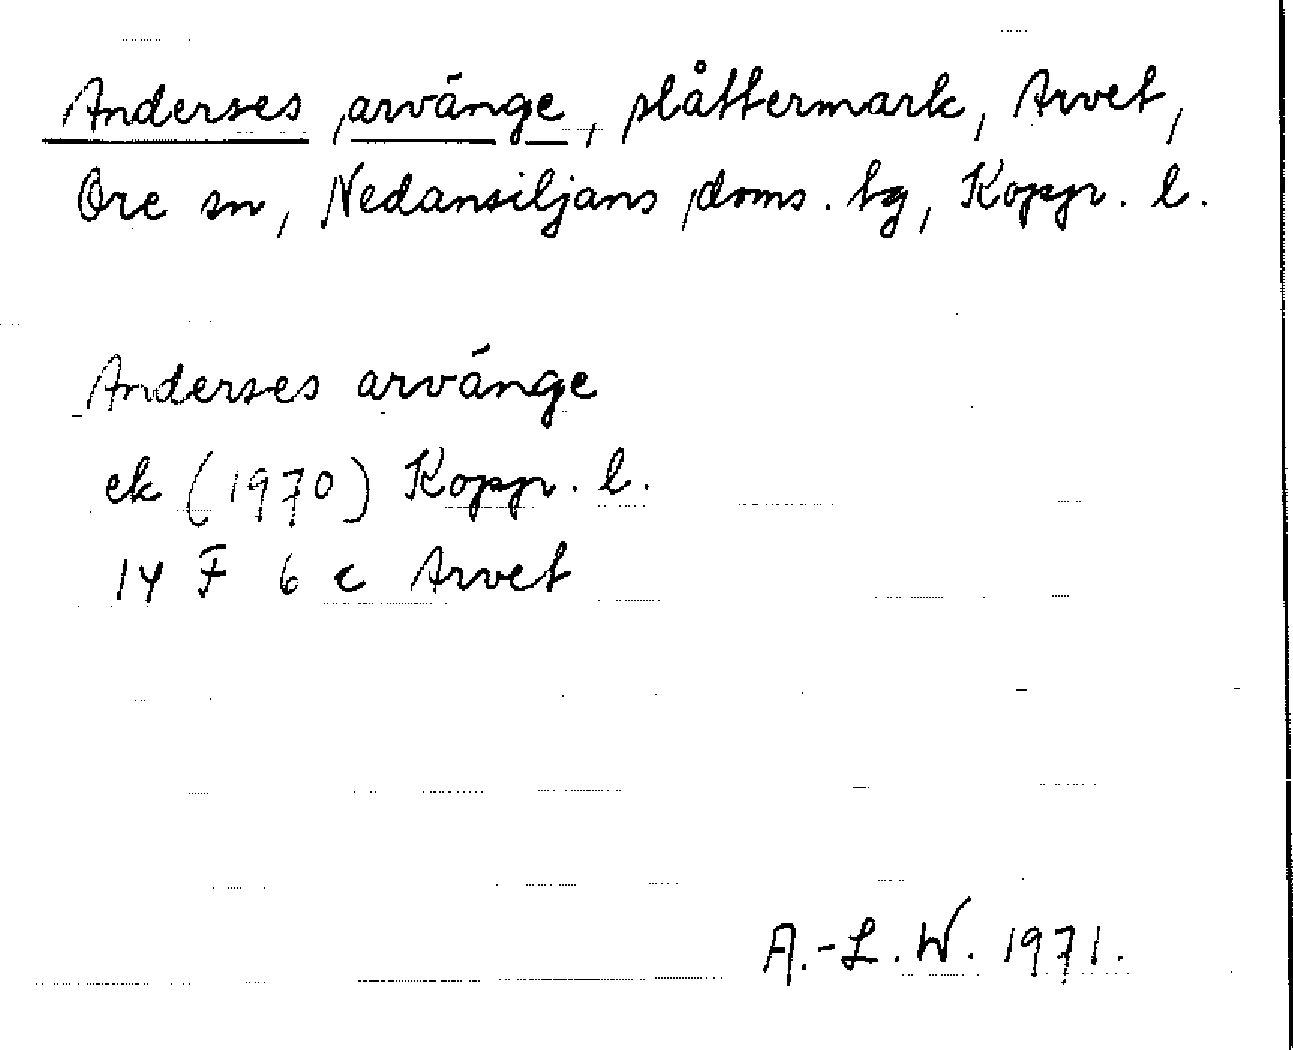 Anderses arvänge, slåttermark, Arvet,
Ore sn, Nedansiljans doms. tg, Koppr. l.
Anderses arvänge
ek (1970) Koppr. l.
14 F 6 c Arvet
A.-L.W. 1971.